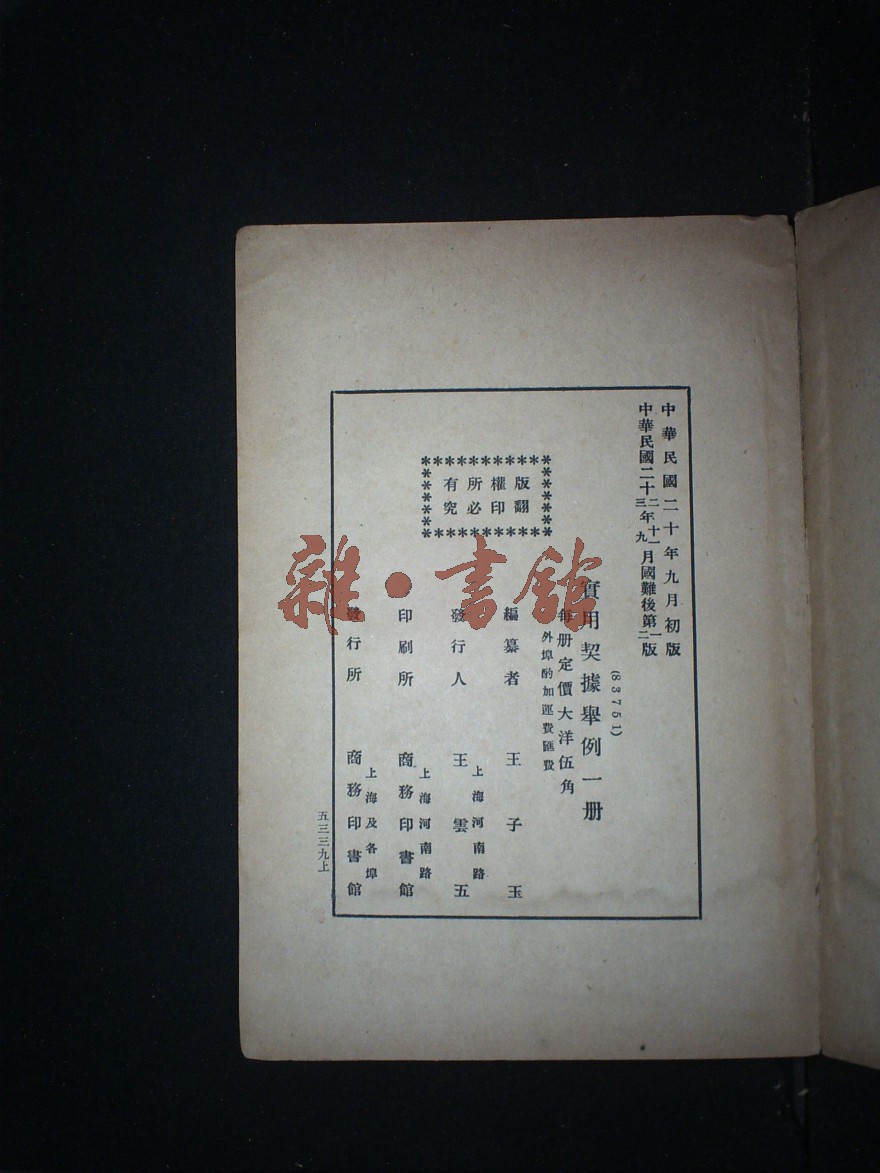 中華民國二十年九月初版
中華民國二十二年十一月國難後第一版
三年九 二
(83751)
實用契據舉例一册
每册定價大洋伍角
外埠酌加運費匯費
版權所有
翻印必究
編纂者 王子玉
上海河南路
發行人 王雲五
上海河南路
印刷所 商務印書館
上海及各埠
發行所 商務印書館
五三三九上
雜·書館